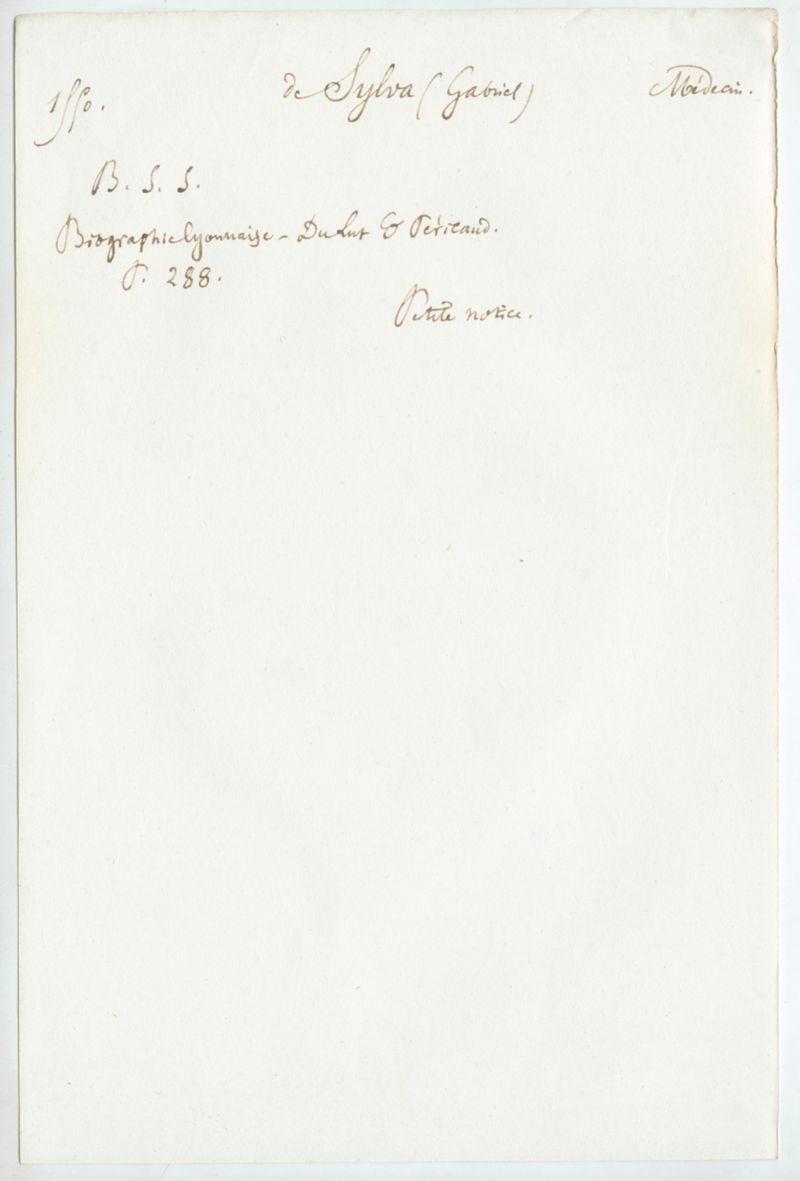 1550. de Sylva (Gabriel) Médecin.
B. S. S.
Biographie lyonnaise - Du Lut & Péricaud.
P. 288.
Petite notice.